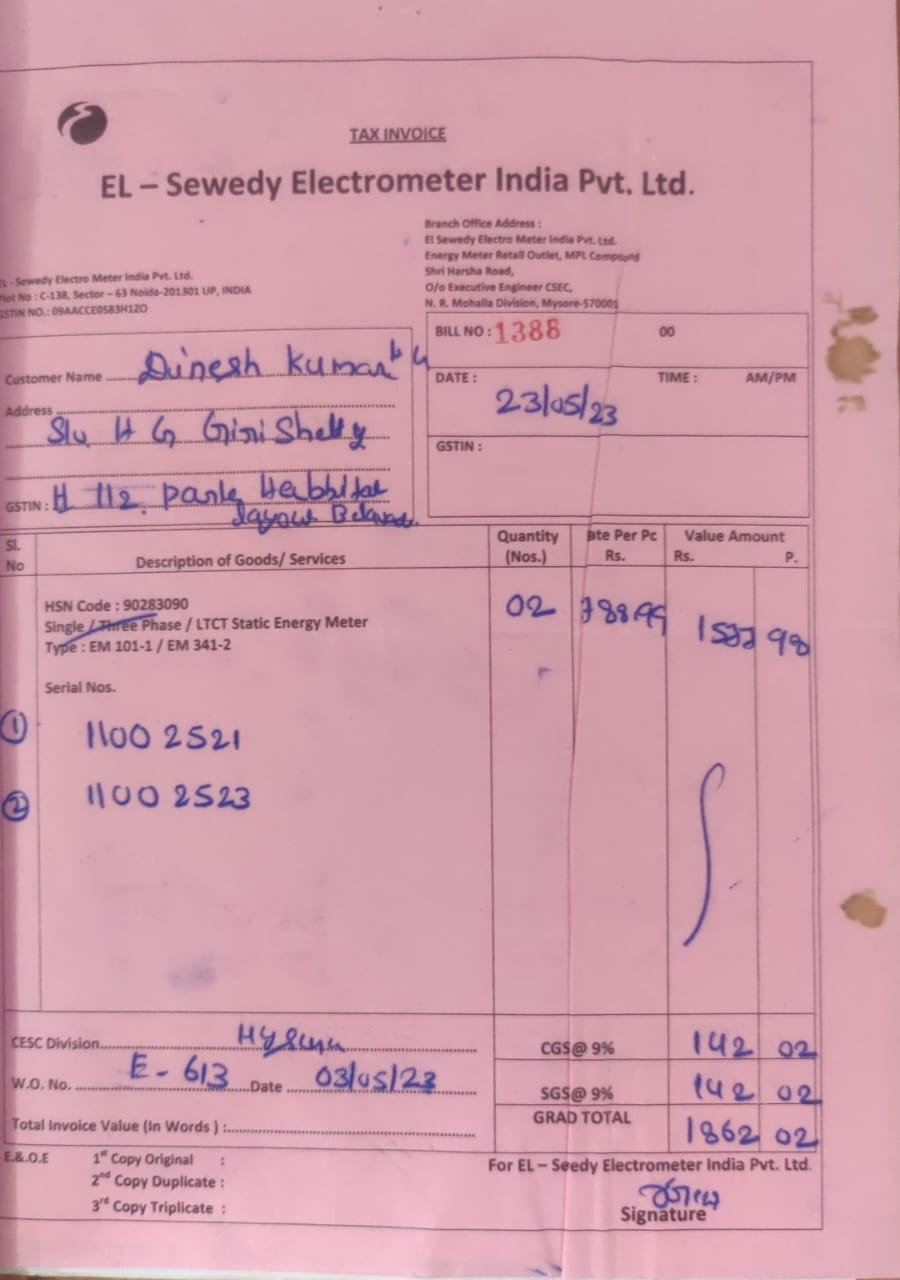 TAX INVOICE
EL – Sewedy Electrometer India Pvt. Ltd.
EL - Sewedy Electro Meter India Pvt. Ltd.
Plot No : C-138, Sector – 63 Noida-201301 UP, INDIA
GSTIN NO.: 09AACCE0583H1ZO
Branch Office Address :
El Sewedy Electro Meter India Pvt. Ltd.
Energy Meter Retail Outlet, MPL Compound
Shri Harsha Road,
O/o Executive Engineer CSEC,
N. R. Mohalla Division, Mysore-570001
Customer Name Dinesh Kumar
Address
H G Giri Shetty
GSTIN : H 112.
BILL NO : 1388 00
DATE : 23/05/23 TIME : AM/PM
GSTIN :
Sl. No Description of Goods/ Services Quantity (Nos.) ate Per Pc Rs. Value Amount Rs. P.
HSN Code : 90283090 02 788.99 98
Single / Three Phase / LTCT Static Energy Meter
Type : EM 101-1 / EM 341-2
Serial Nos.
1 1100 2521
2 1100 2523
CESC Division
W.O. No. E - 613 Date 03/05/23
Total Invoice Value (In Words ) :
CGS@ 9% 142 02
SGS@ 9% 142 02
GRAD TOTAL 1862 02
E.& O.E 1st Copy Original :
2nd Copy Duplicate :
3rd Copy Triplicate :
For EL – Seedy Electrometer India Pvt. Ltd.
Signature